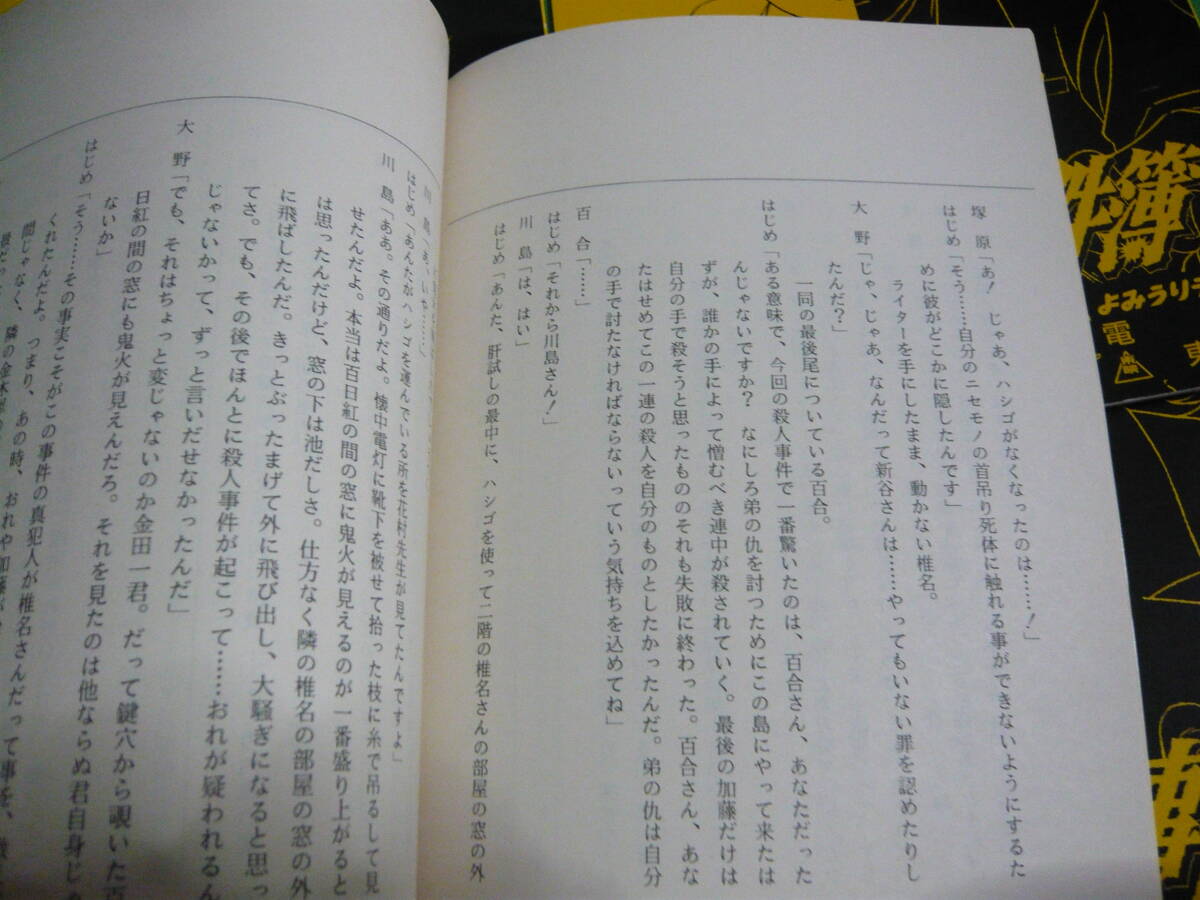 塚原「あ！　じゃあ、ハシゴがなくなったのは……！」
はじめ「そう……自分のニセモノの首吊り死体に触れる事ができないようにするた
めに彼がどこかに隠したんです」
ライターを手にしたまま、動かない椎名。
大野「じゃ、じゃあ、なんだって新谷さんは……やってもいない罪を認めたりし
たんだ？」
一回の最後尾についている百合。
はじめ「ある意味で、今回の殺人事件で一番驚いたのは、百合さん、あなただった
んじゃないですか？　なにしろ弟の仇を討つためにこの島にやって来たは
ずが、誰かの手によって憎むべき連中が殺されていく。最後の加藤だけは
自分の手で殺そうと思ったもののそれも失敗に終わった。百合さん、あな
たはせめてこの一連の殺人を自分のものとしたかったんだ。弟の仇は自分
の手で討たなければならないっていう気持ちを込めてね」
百合「……」
はじめ「それから川島さん！」
川島「は、はい」
はじめ「あんた、肝試しの最中に、ハシゴを使って二階の椎名さんの部屋の窓の外
川島「あ、いや……」
はじめ「あんたがハシゴを運んでいる所を花村先生が見てたんですよ」
川島「ああ。その通りだよ。懐中電灯に靴下を被せて拾った枝に糸で吊るして見
せたんだよ。本当は百日紅の間の窓に鬼火が見えるのが一番盛り上がると
は思ったんだけど、窓の下は池だしさ。仕方なく隣の椎名の部屋の窓の外
に飛ばしたんだ。きっとぶったまげて外に飛び出し、大騒ぎになると思っ
てさ。でも、その後でほんとに殺人事件が起こって……おれが疑われるん
じゃないかって、ずっと言いだせなかったんだ」
大野「でも、それはちょっと変じゃないのか金田一君。だって鍵穴から覗いた百
日紅の間の窓にも鬼火が見えんだろ。それを見たのは他ならぬ君自身じゃ
ないか」
はじめ「そう……その事実こそがこの事件の真犯人が椎名さんだって事を、教
くれたんだよ。つまり、あの時、おれや加藤が
間じゃなく、隣の金木犀の
件簿
よみうりテ
電